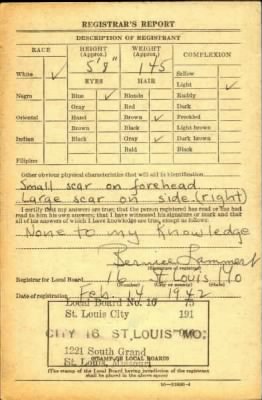 REGISTRAR'S REPORT
DESCRIPTION OF REGISTRANT
RACE
HEIGHT (Approx.)
WEIGHT (Approx.)
COMPLEXION
5'9"
145
White ✓
EYES
HAIR
Sallow
Light ✓
Negro
Blue ✓
Blonde
Ruddy
Gray
Red
Dark
Oriental
Hazel
Brown ✓
Freckled
Brown
Black
Light brown
Indian
Black
Gray
Dark brown
Bald
Black
Filipino
Other obvious physical characteristics that will aid in identification
Small scar on forehead
Large scar on side (right)
I certify that my answers are true; that the person registered has read or has had
read to him his own answers; that I have witnessed his signature or mark and that
all of his answers of which I have knowledge are true, except as follows:
None to my Knowledge
Bernice Lammert
(Signature of registrar)
Registrar for Local Board 16 St Louis Mo
(Number) (City or county) (State)
Date of registration Feb. 1942
Local Board No. 16
St. Louis City 191
CITY 16 ST. LOUIS MO.
1221 South Grand
St. Louis, Missouri
(STAMP OF LOCAL BOARD)
(The stamp of the Local Board having jurisdiction of the registrant
shall be placed in the above space)